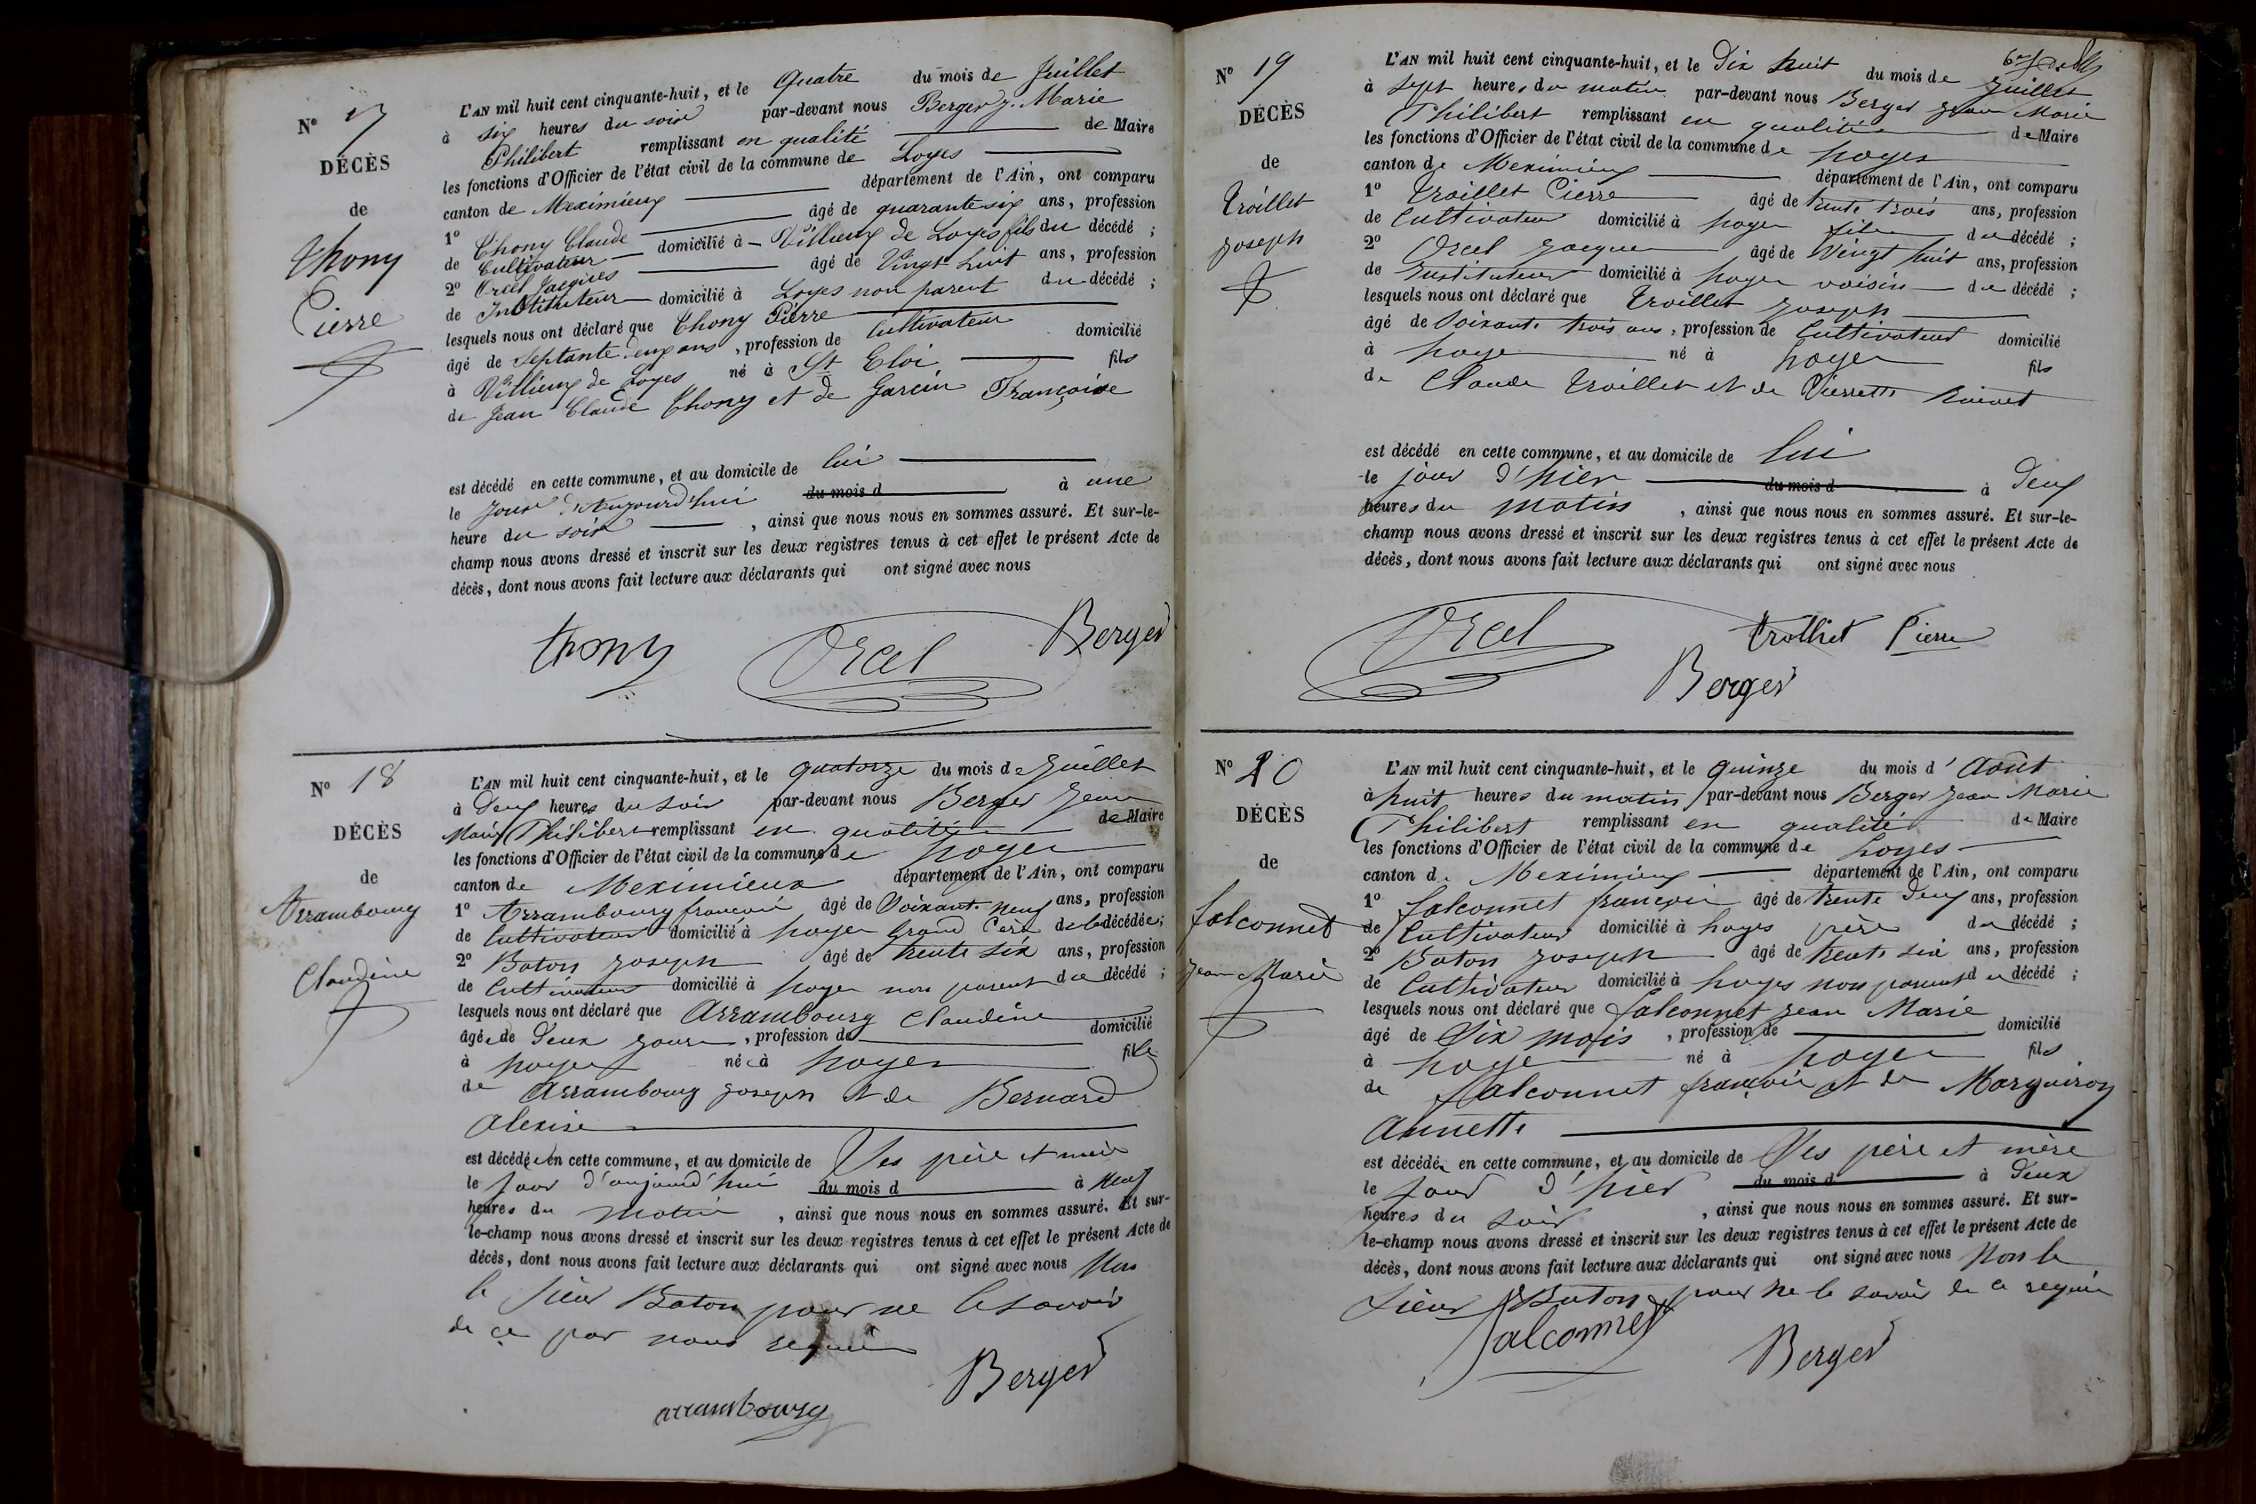 N° 17
DÉCÈS
de
Thony
Pierre
L'AN mil huit cent cinquante-huit, et le Quatre du mois de Juillet
à six heures du soir par-devant nous Berger J. Marie
Philibert remplissant en qualité de Maire
les fonctions d'Officier de l'état civil de la commune de Loyes
canton de Meximieux département de l'Ain, ont comparu
1° Thony Claude âgé de quarante six ans, profession
de Cultivateur domicilié à Villieux de Loyes fils du décédé ;
2° Orcel Jacques âgé de Vingt huit ans, profession
de Instituteur domicilié à Loyes non parent du décédé ;
lesquels nous ont déclaré que Thony Pierre
âgé de Septante deux ans, profession de Cultivateur domicilié
à Villieux de Loyes né à St Eloi fils
de Jean Claude Thony et de Garcin Françoise
est décédé en cette commune, et au domicile de lui
le jour d'Aujourd'hui du mois d à une
heure du soir, ainsi que nous nous en sommes assuré. Et sur-le-
champ nous avons dressé et inscrit sur les deux registres tenus à cet effet le présent Acte de
décès, dont nous avons fait lecture aux déclarants qui ont signé avec nous
Thony Orcel Berger
N° 18
DÉCÈS
de
Arrambourg
Claudine
L'AN mil huit cent cinquante-huit, et le quatorze du mois de Juillet
à Deux heures du soir par-devant nous Berger Jean
Marie Philibert remplissant en qualité de Maire
les fonctions d'Officier de l'état civil de la commune de Loyes
canton de Meximieux département de l'Ain, ont comparu
1° Arrambourg françois âgé de Soixante neuf ans, profession
de Cultivateur domicilié à Loyes Grand Père de la décédée ;
2° Baton Joseph âgé de trente six ans, profession
de Cultivateur domicilié à Loyes non parent du décédé ;
lesquels nous ont déclaré que Arrambourg Claudine
âgée de deux jours, profession de domicilié
à Loyes née à Loyes fille
de Arrambourg Joseph et de Bernard
Alexise
est décédée en cette commune, et au domicile de Ses père et mère
le jour d'aujourd'hui du mois d à neuf
heures du matin, ainsi que nous nous en sommes assuré. Et sur-
le-champ nous avons dressé et inscrit sur les deux registres tenus à cet effet le présent Acte de
décès, dont nous avons fait lecture aux déclarants qui ont signé avec nous Non
le sieur Baton pour ne le savoir
de ce par nous requis
Berger
arrambourg
N° 19
DÉCÈS
de
Troillet
Joseph
L'AN mil huit cent cinquante-huit, et le Dix huit du mois de Juillet
à sept heures du matin par-devant nous Berger Jean Marie
Philibert remplissant en qualité de Maire
les fonctions d'Officier de l'état civil de la commune de Loyes
canton de Meximieux département de l'Ain, ont comparu
1° Troillet Pierre âgé de trente trois ans, profession
de Cultivateur domicilié à Loyes fils du décédé ;
2° Orcel Jacques âgé de Vingt huit ans, profession
de Instituteur domicilié à Loyes voisin du décédé ;
lesquels nous ont déclaré que Troillet Joseph
âgé de Soixante trois ans, profession de Cultivateur domicilié
à Loyes né à Loyes fils
de Claude Troillet et de Pierrette
est décédé en cette commune, et au domicile de lui
le jour d'hier du mois d à Deux
heures du matin, ainsi que nous nous en sommes assuré. Et sur-le-
champ nous avons dressé et inscrit sur les deux registres tenus à cet effet le présent Acte de
décès, dont nous avons fait lecture aux déclarants qui ont signé avec nous
Orcel Trolliet Pierre
Berger
N° 20
DÉCÈS
de
falconnet
Jean Marie
L'AN mil huit cent cinquante-huit, et le quinze du mois d'Août
à huit heures du matin par-devant nous Berger Jean Marie
Philibert remplissant en qualité de Maire
les fonctions d'Officier de l'état civil de la commune de Loyes
canton de Meximieux département de l'Ain, ont comparu
1° falconnet françois âgé de trente Deux ans, profession
de Cultivateur domicilié à Loyes père du décédé ;
2° Baton Joseph âgé de trente six ans, profession
de Cultivateur domicilié à Loyes non parent du décédé ;
lesquels nous ont déclaré que falconnet Jean Marie
âgé de Six mois, profession de domicilié
à Loyes né à Loyes fils
de falconnet françois et de Marguiron
Annette
est décédé en cette commune, et au domicile de Ses père et mère
le jour d'hier du mois d à deux
heures du soir, ainsi que nous nous en sommes assuré. Et sur-
le-champ nous avons dressé et inscrit sur les deux registres tenus à cet effet le présent Acte de
décès, dont nous avons fait lecture aux déclarants qui ont signé avec nous Non le
sieur Baton pour ne le savoir de ce requis
falconnet
Berger